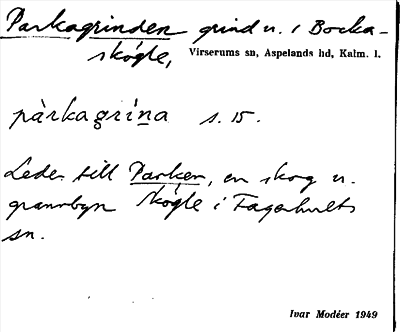 Parkagrinden grind u. i Bocka-
skögle, Virserums sn, Aspelands hd, Kalm. l.
pàrkagrína s. 15.
Leder till Parken, en skog u.
grannbyn Skögle i Fagerhults
sn.
Ivar Modéer 1949